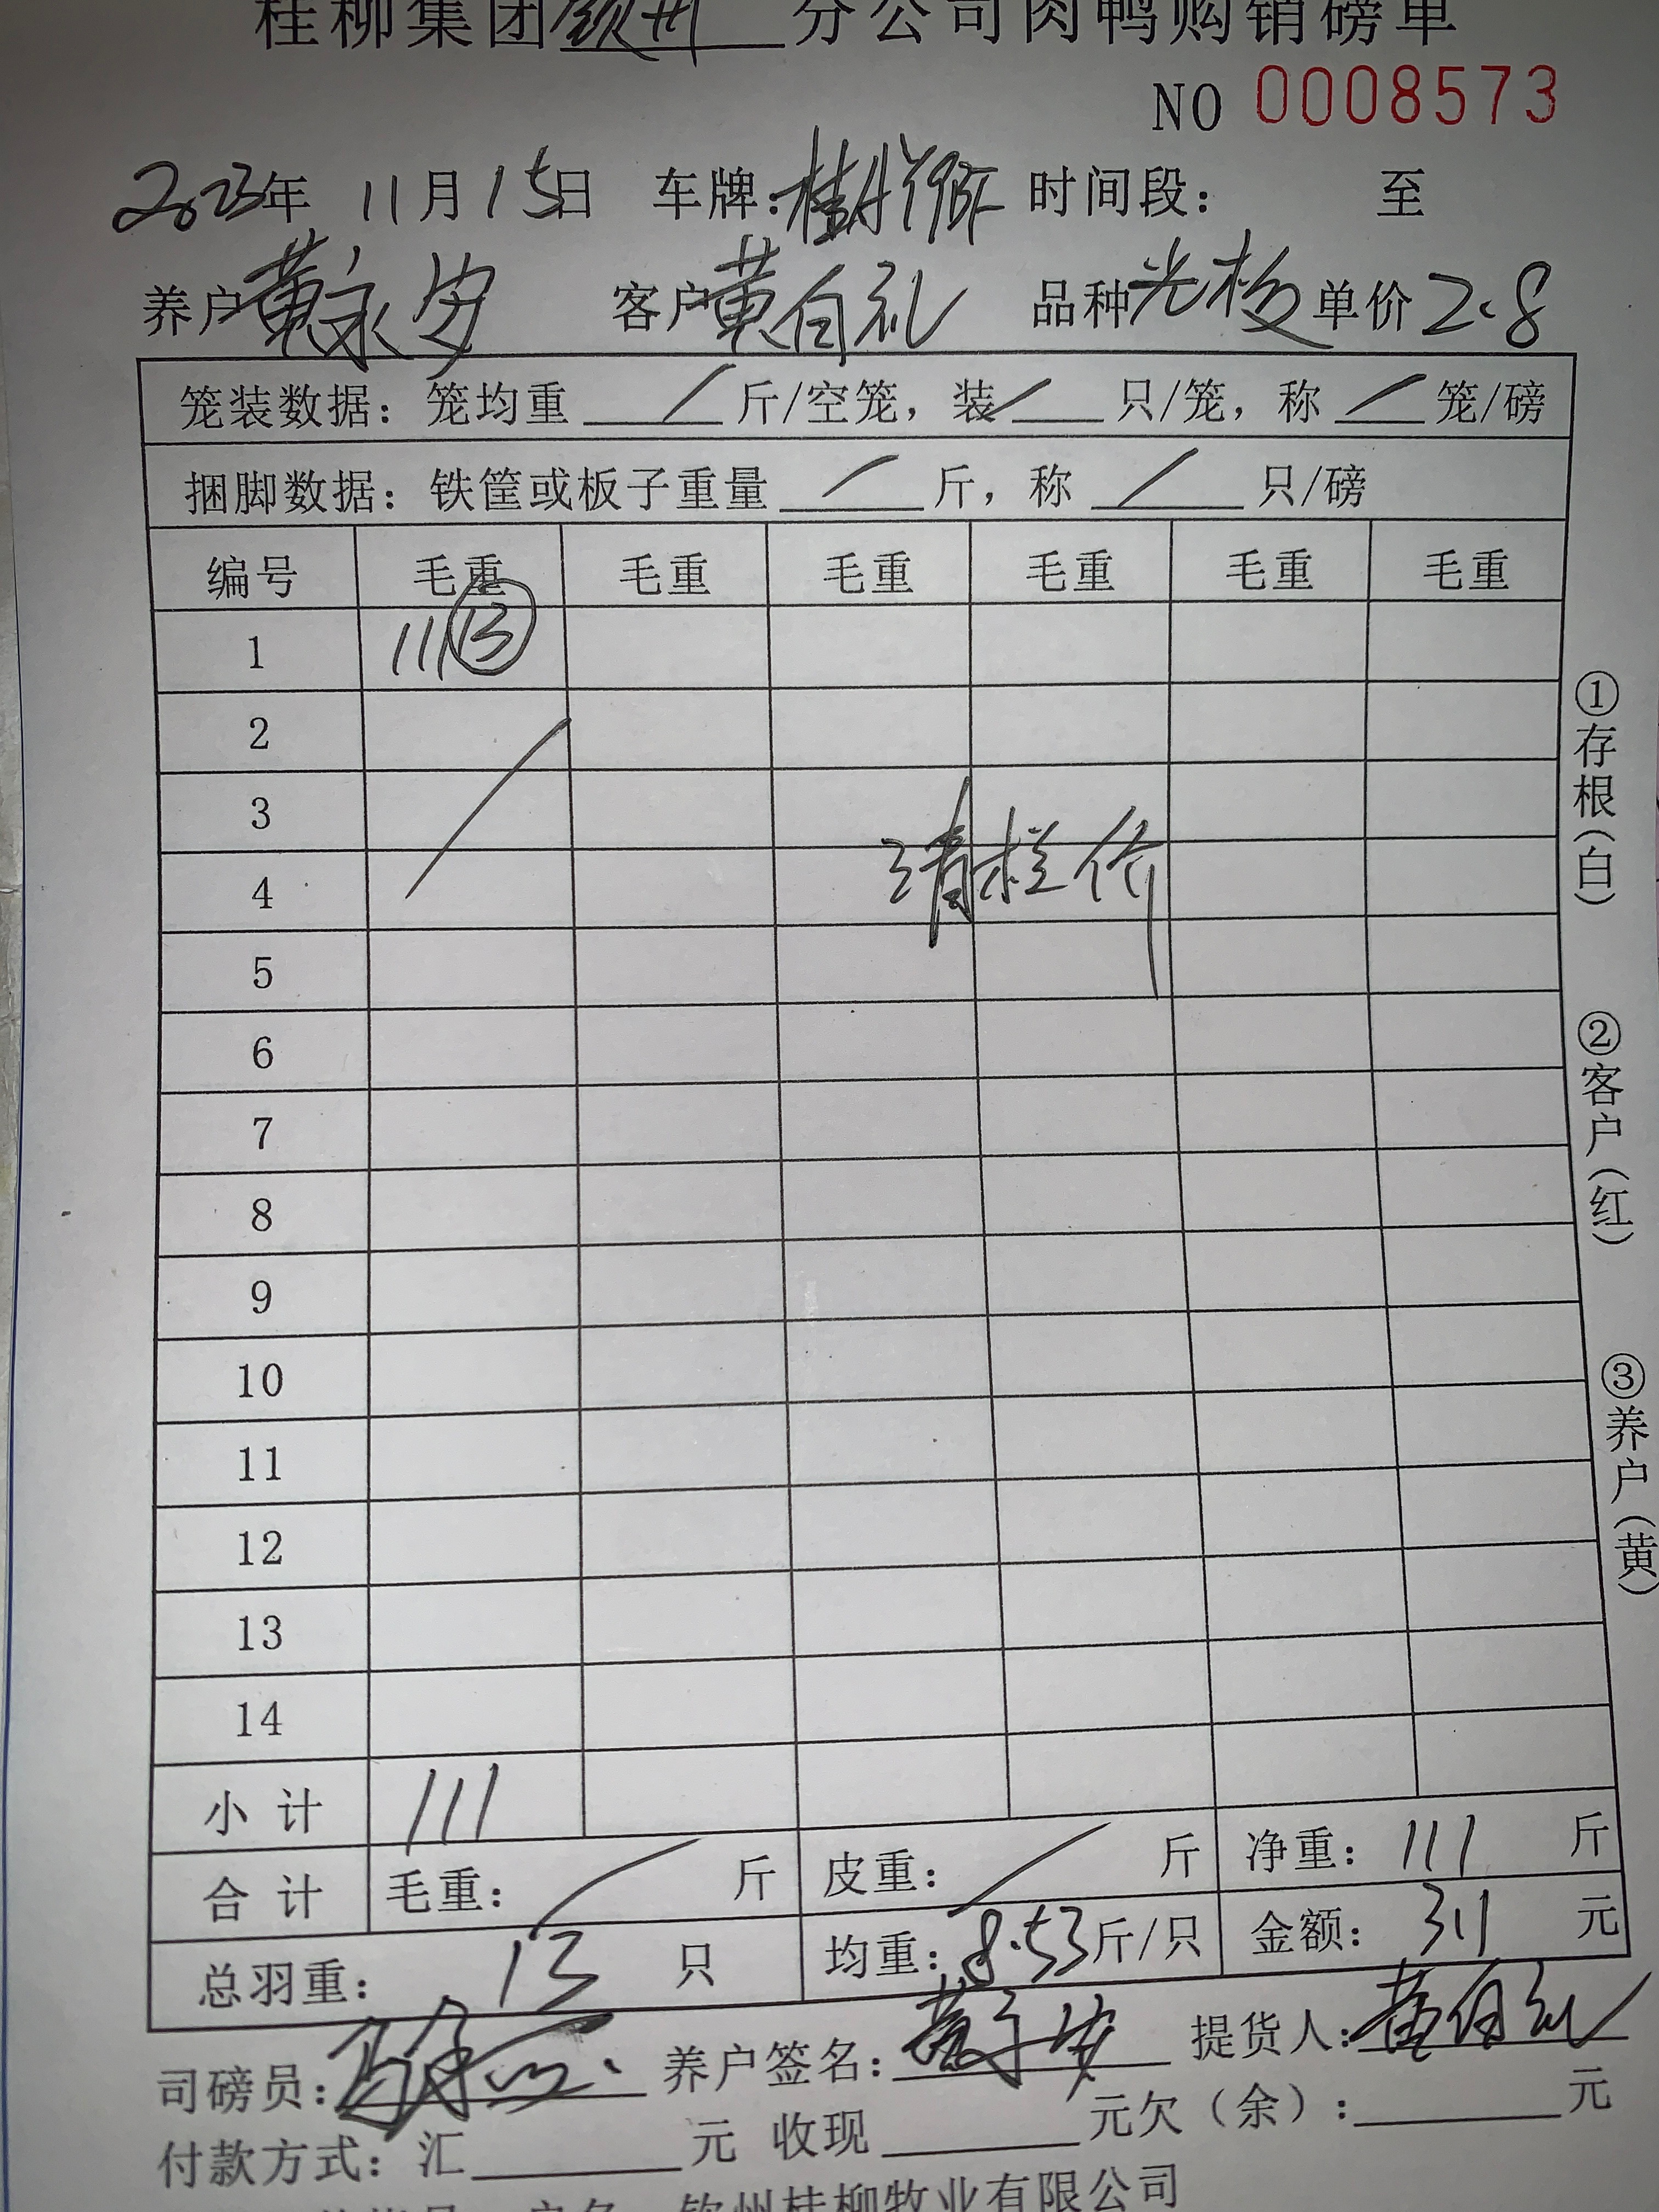 桂柳集团钦州分公司肉鸭购销磅单
NO 0008573
2023年 11月15日 车牌: 时间段: 至
养户黄永 客户黄白礼 品种 单价2.8
笼装数据: 笼均重 / 斤/空笼, 装 / 只/笼, 称 / 笼/磅
捆脚数据: 铁筐或板子重量 / 斤, 称 / 只/磅
编号 毛重 毛重 毛重 毛重 毛重 毛重
1 111 ⑬
2
3
4 清栏价
5
6
7
8
9
10
11
12
13
14
小计 111
合计 毛重: / 斤 皮重: / 斤 净重: 111 斤
总羽重: 13 只 均重: 8.53斤/只 金额: 311 元
司磅员: 养户签名: 提货人:黄白礼
付款方式: 汇 元 收现 元欠(余): 元
钦州桂柳牧业有限公司
①存根(白)
②客户(红)
③养户(黄)